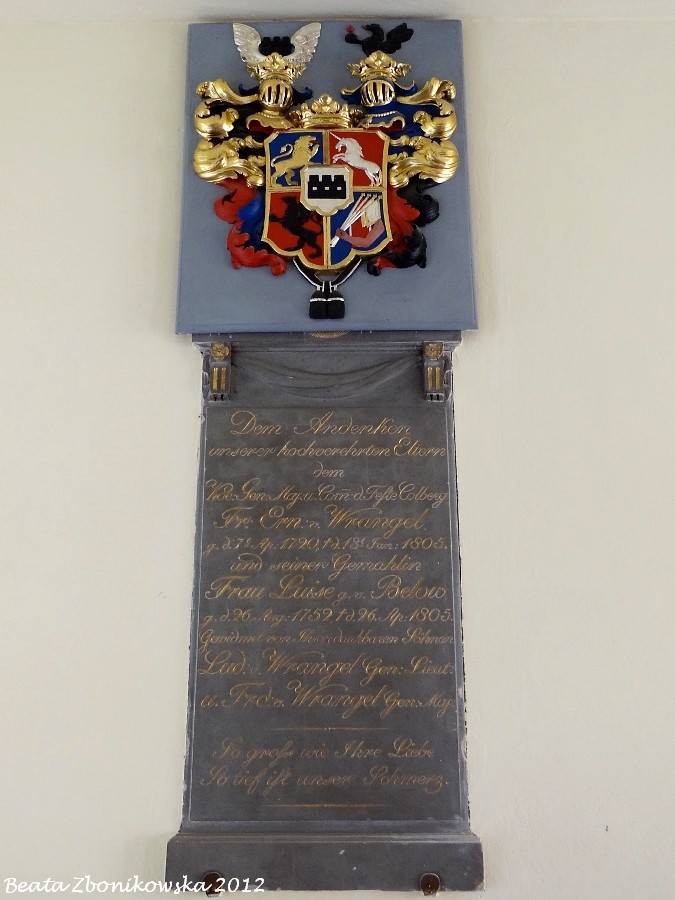 Dem Andenken
unserer hochverehrten Eltern
dem
Gen: Maj. u. Com: d. Fest: Colberg
Fr. Ern: v. Wrangel
g. d. 7t. Ap. 1720, † d. 18t. Jan: 1805.
und seiner Gemahlin
Frau Luise g. v. Below
g. d. 26. Aug: 1759, † d. 26. Ap: 1805.
Gewidmet von Ihren dankbaren Söhnen
Lud: v. Wrangel Gen: Lieut:
u. Frd. v. Wrangel Gen: Maj.
So groß wie Ihre Liebe
So tief ist unser Schmerz.
Beata Zbonikowska 2012